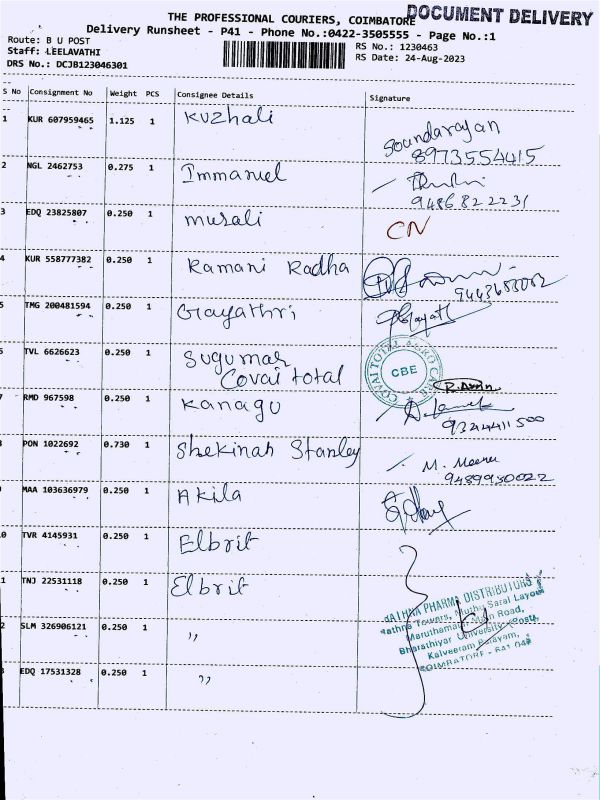 DOCUMENT DELIVERY
THE PROFESSIONAL COURIERS, COIMBATORE
Delivery Runsheet - P41 - Phone No.:0422-3505555 - Page No.:1
Route: B U POST
Staff: LEELAVATHI
DRS No.: DCJB123046301
RS No.: 1230463
RS Date: 24-Aug-2023
S No Consignment No Weight PCS Consignee Details Signature
1 KUR 607959465 1.125 1 Kuzhali Soundarayan
8973554415
2 NGL 2462753 0.275 1 Immanuel
9486822231
3 EDQ 23825807 0.250 1 Murali CN
4 KUR 558777382 0.250 1 Ramani Radha
9443683002
5 TMG 200481594 0.250 1 Gayathri Gayath
6 TVL 6626623 0.250 1 Sugumar
Covai total
COVAI TOTAL CARE
CBE
7 RMD 967598 0.250 1 Kanagu
9344411500
8 PON 1022692 0.730 1 Shekinah Stanley M. Meena
9489950022
9 MAA 103636979 0.250 1 Akila
10 TVR 4145931 0.250 1 Elbrit
11 TNJ 22531118 0.250 1 Elbrit
12 SLM 326906121 0.250 1 "
13 EDQ 17531328 0.250 1 "
RATHNA PHARMA DISTRIBUTORS
Rathna Towers, Muthu Saral Layout
Maruthamalai Main Road,
Bharathiyar University (Post),
Kalveeram Palayam,
COIMBATORE - 641 046